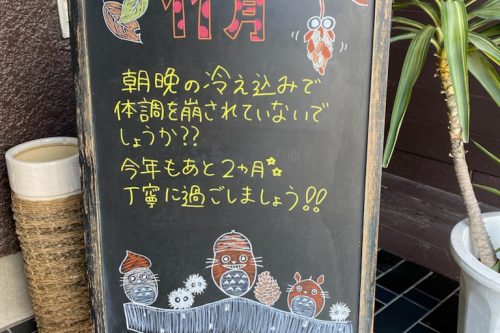 11月
朝晩の冷え込みで
体調を崩されていないで
しょうか??
今年もあと2ヵ月
丁寧に過ごしましょう!!